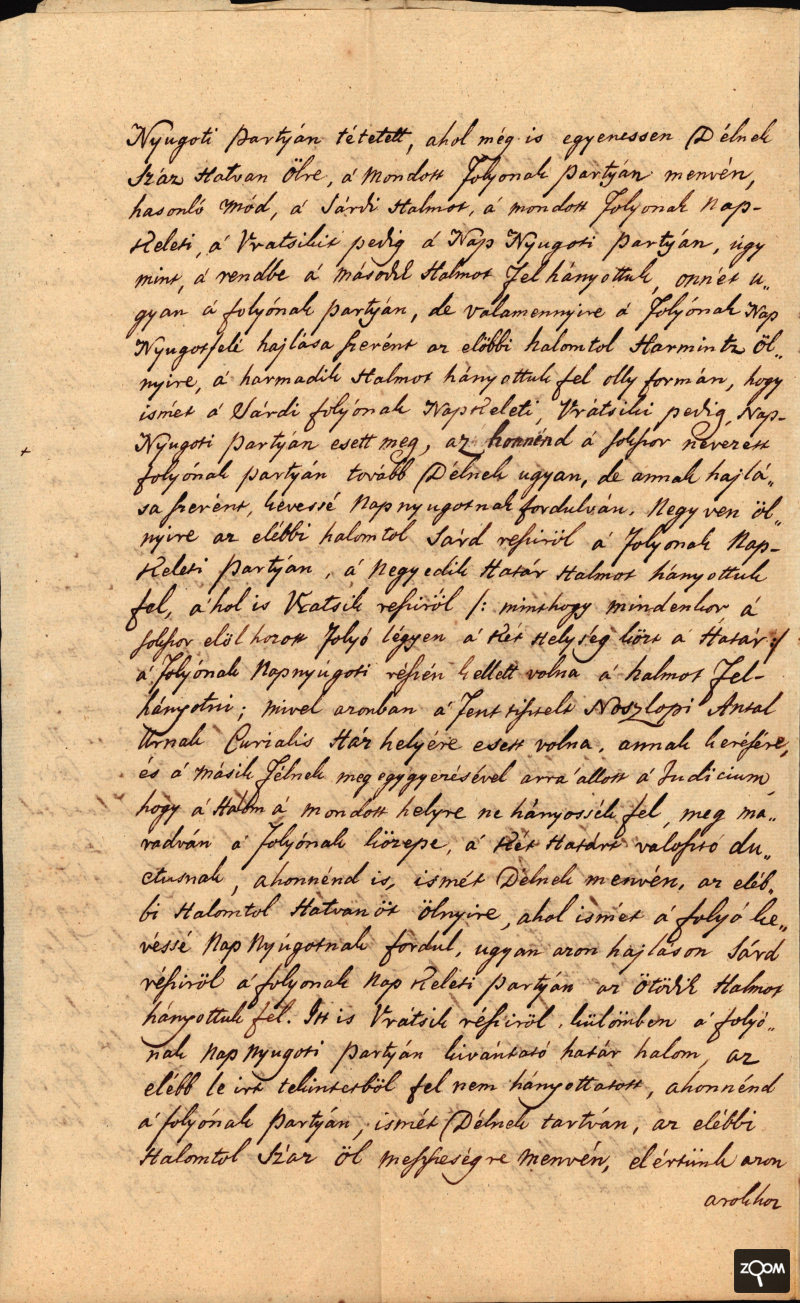 Nyugoti Partyán tétetett, ahol még is egyenessen Délnek
Száz Hatvan Ölre, á mondott Folyonak partyán menvén,
hasonló mód, á Sárdi Halmot, á mondott Folyonak Nap-
Keleti, á Vratsikit pedig á Nap Nyugoti partyán, úgy
mint, á rendbe á második Halmot fel hányottuk, onnét u„
gyan á folyónak partyán, de valamennyire á Folyónak Nap
Nyugotfelé hajlása szerént az elöbbi halomtol Harmintz Öl„
nyire, á harmadik Halmot hányottuk fel olly formán, hogy
ismét á Sárdi folyónak NapKeleti, Vrátsiki pedig Nap-
Nyugoti partyán esett meg, az honnénd á sokszor nevezett
folyónak partyán tovább Délnek ugyan, de annak hajlá„
sa szerént, kevessé Napnyugotnak fordulván, Negyven öl„
nyire az elébbi halomtol Sárd részirŏl á Folyonak Nap-
Keleti Partyán, á Negyedik Határ Halmot hányottuk
fel, á hol is Vratsik részirŏl /: minthogy mindenkor á
sokszor elöl hozott Folyó légyen á Két Helység közt á Határ :/
á Folyónak Napnyúgoti részén kellett volna á halmot Fel-
hányotni; mivel azonban á Fent tisztelt Noszlopi Antal
Urnak Curialis Ház helyére esett volna, annak kerésére,
és á másik Félnek meg egygyezésével arra állott á Judicium,
hogy á Halom á mondott helyre ne hányossék fel, meg ma„
radván á Folyónak közepe, á Két Határt valosító du„
ctusnak, ahonnénd is, ismét Délnek menvén, az eléb„
bi Halomtol Hatvanöt ölnyire, ahol ismét á folyó ke„
véssé Nap Nyúgotnak fordul, ugyan azon hajláson Sárd
részirŏl á folyonak Nap Keleti partyán az Ötödik Halmot
hányottuk fel. Itt is Vrátsik részirŏl, külömben á folyó„
nak Nap Nyugoti Partyán kivántató határ halom, az
elébb le irt tekintetböl fel nem hányottatott, ahonnénd
á folyónak Partyán, ismét Délnek tartván, az elébbi
Halomtol Száz öl messzeségre menvén, el értünk azon
arokhoz
ZOOM